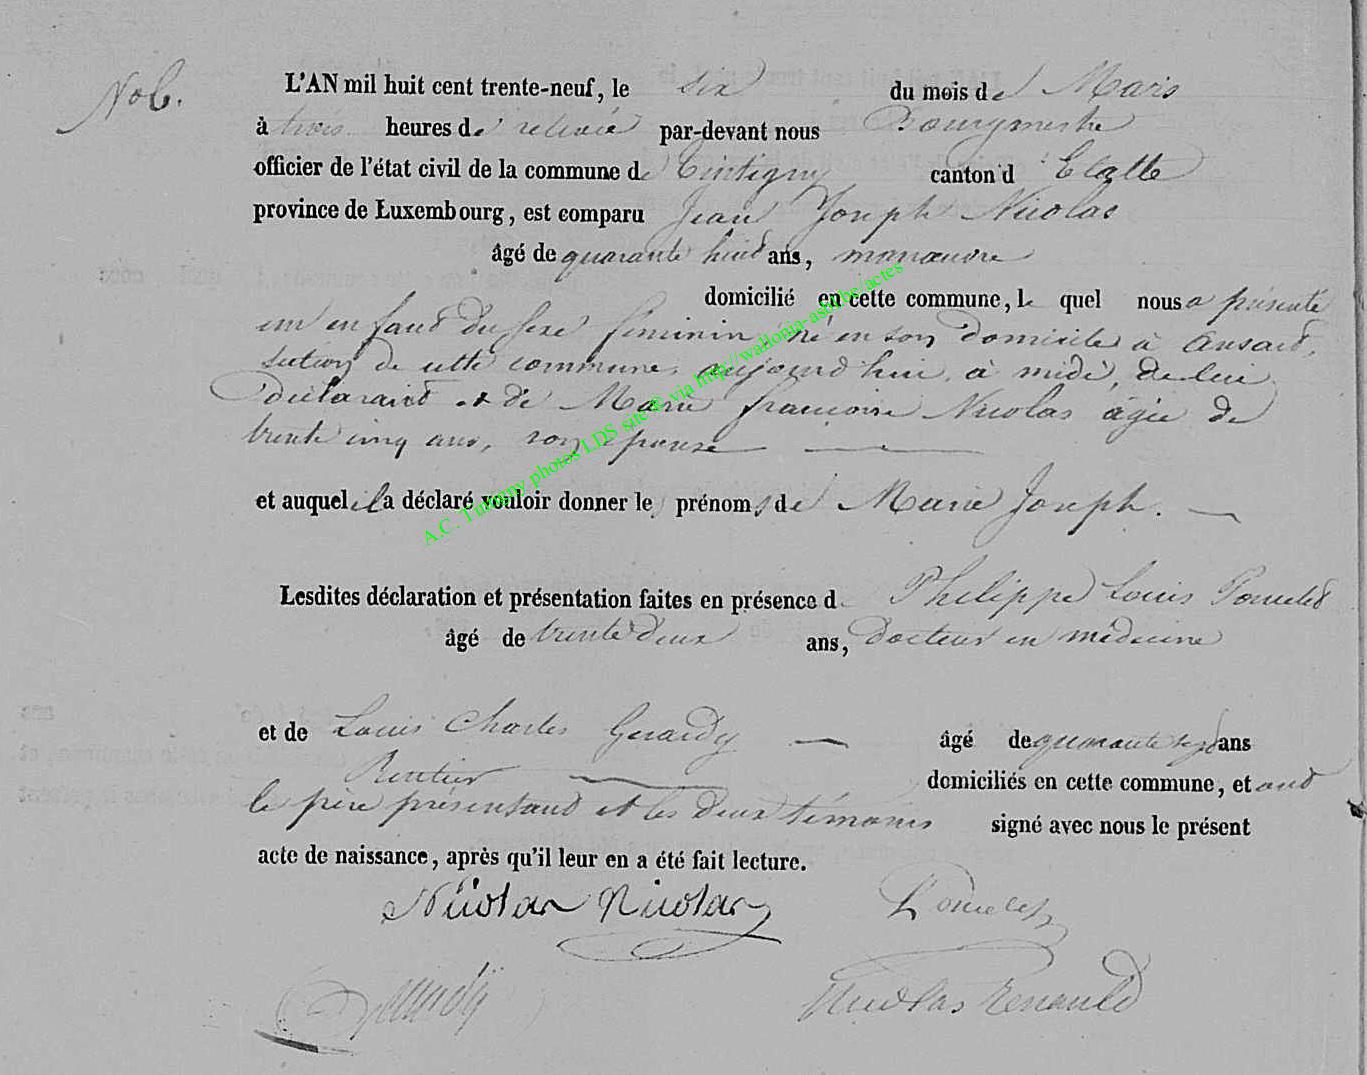 No 6.
L'AN mil huit cent trente-neuf, le six du mois de Mars
à trois heures de relevée par-devant nous Bourgmestre
officier de l'état civil de la commune de Tintigny canton d'Etalle
province de Luxembourg, est comparu Jean Joseph Nicolas
âgé de quarante huit ans, manœuvre
domicilié en cette commune, le quel nous a présenté
un enfant du sexe féminin né en son domicile à Ansart,
section de cette commune, aujourd'hui, à midi, de lui
déclarant et de Marie françoise Nicolas âgée de
trente cinq ans, son épouse
et auquel il a déclaré vouloir donner les prénoms de Marie Joseph.
Lesdites déclaration et présentation faites en présence d Philippe Louis
âgé de trente deux ans, Docteur en médecine
et de Louis Charles Gerardy âgé de quarante sept ans
Rentier domiciliés en cette commune, et ont
le père présentant et les deux témoins signé avec nous le présent
acte de naissance, après qu'il leur en a été fait lecture.
Nicolas Nicolas
Nicolas Renauld
A.C. Thiry photos LDS site © via http://wallonia-asbl.be/actes